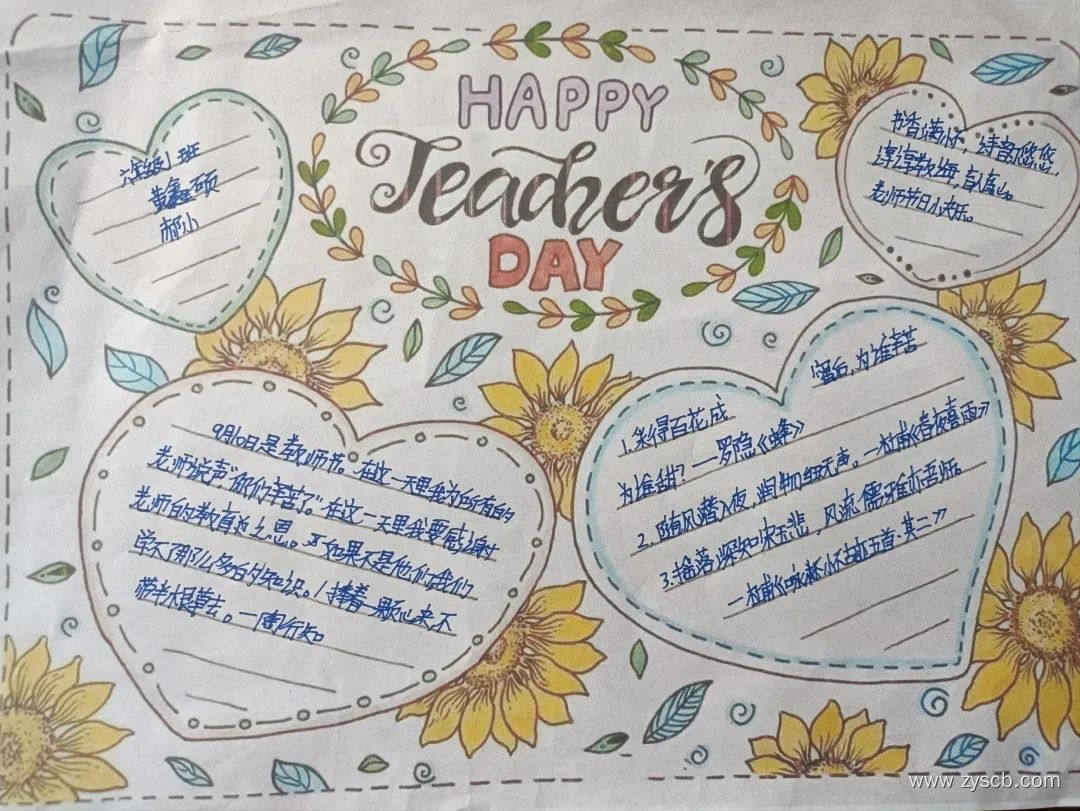 HAPPY
Teacher's
DAY
六年级1班
黄鑫硕
郝小
书香满怀，诗意悠悠，
淳淳教诲，
老师节日小快乐。
9月10日是教师节。在这一天里我为所有的
老师说声“你们辛苦了”。在这一天里我要感谢
老师的教育之恩。如果不是他们我们
学不了那么多的知识。1捧着一颗心来，不
带半根草去。一陶行知
酿后，为谁辛苦
1.采得百花成
为谁甜？——罗隐《蜂》
2.随风潜入夜，润物细无声。一杜甫《春夜喜雨》
3.摇落深知宋玉悲，风流儒雅亦吾师。
一杜甫《咏怀古迹五首·其二》
www.zyscb.com